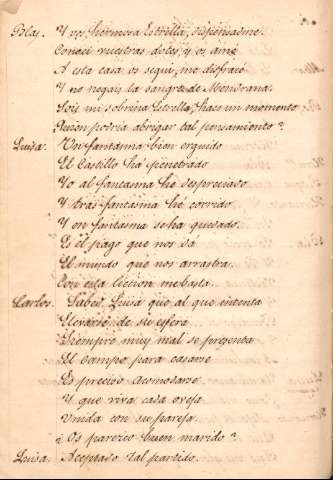 Blas. Y vos, hermosa Estrella, dispensadme.
Conocí vuestras dotes, y os amé
A esta casa os seguí, me disfracé
Y no negais la sangre de Mendrana.
Sois mi sobrina Estrella, hace un momento
Quien podria abrigar tal pensamiento?
Luisa. Un fantasma bien erguido
El Castillo há penetrado
Yo al fantasma hé despreciado
Y tras fantasma hé corrido
Y en fantasma seha quedado.
Es él pago que nos dá
El mundo que nos arrastra.
Con esta leccion me basta.
Carlos. Sabed Luisa que al que intenta
Elevarse de su esfera
Siempre muy mal se presenta
El campo para
Es preciso acomodarse
Y que viva cada oveja
Unida con su pareja
¿Os parezco buen marido?
Luisa. Aceptado tal partido.